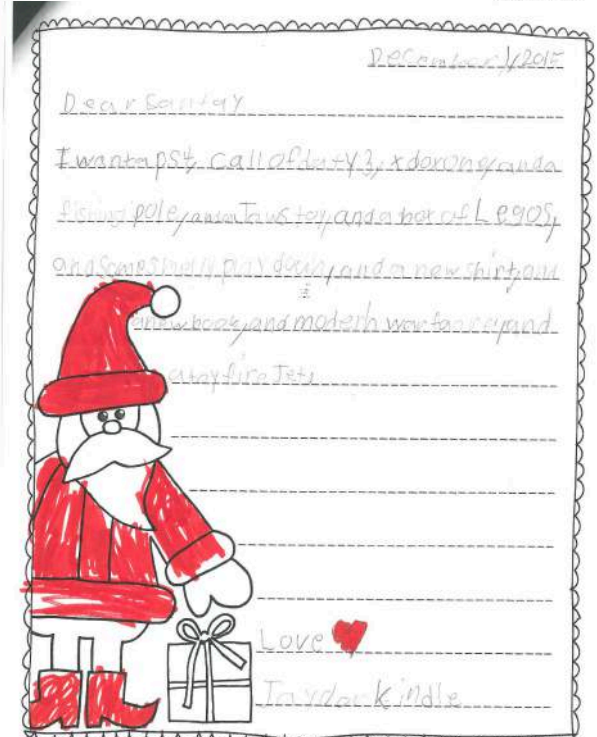 December 1, 2015
Dear Santay
I want a ps4, call of duty 3, xboxone, and a
fising pole, and a Jaws toy, and a box of Legos,
and some play douh, and a new shirt, and
a new book, and modern warfare, and
a toy fire Jets
Love
Kindle